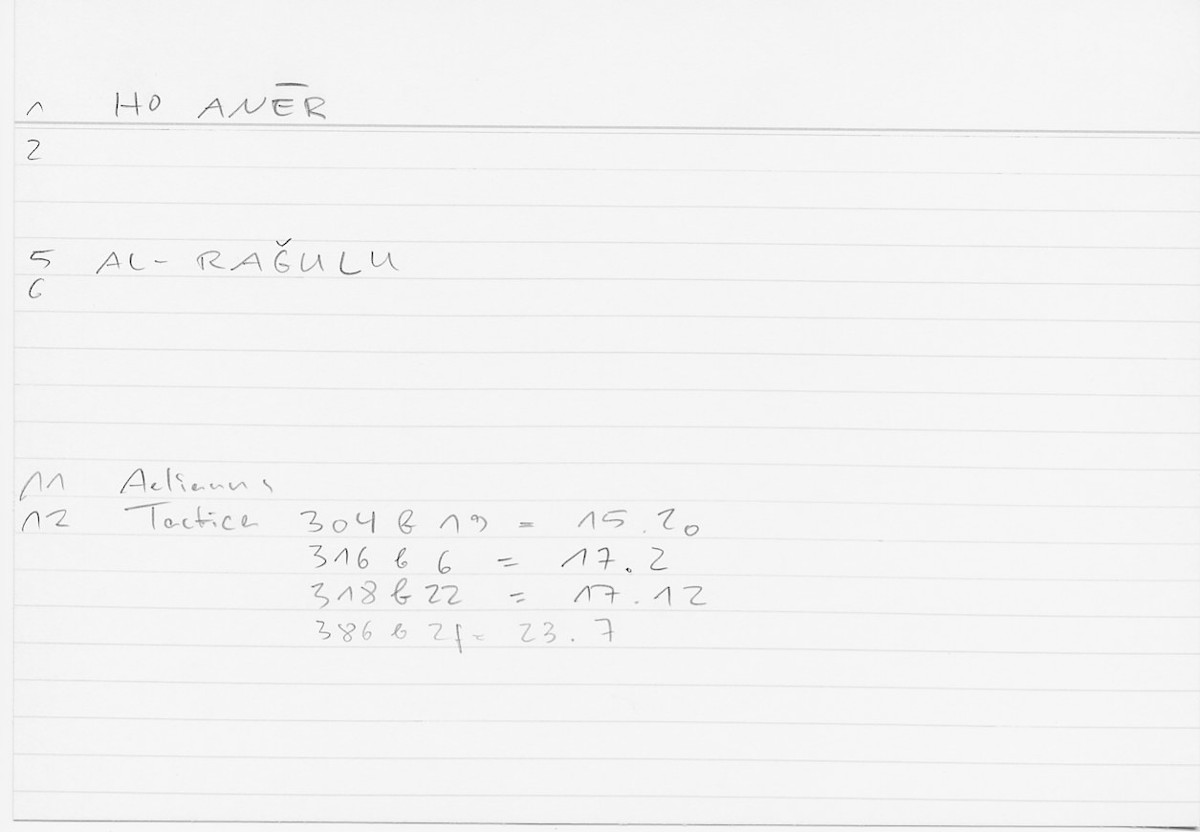 1 HO ANĒR
2
5 AL-RAǦULU
6
11 Aelianus
12 Tactica 304 b 19 = 15.20
316 b 6 = 17.2
318 b 22 = 17.12
386 b 2f = 23.7